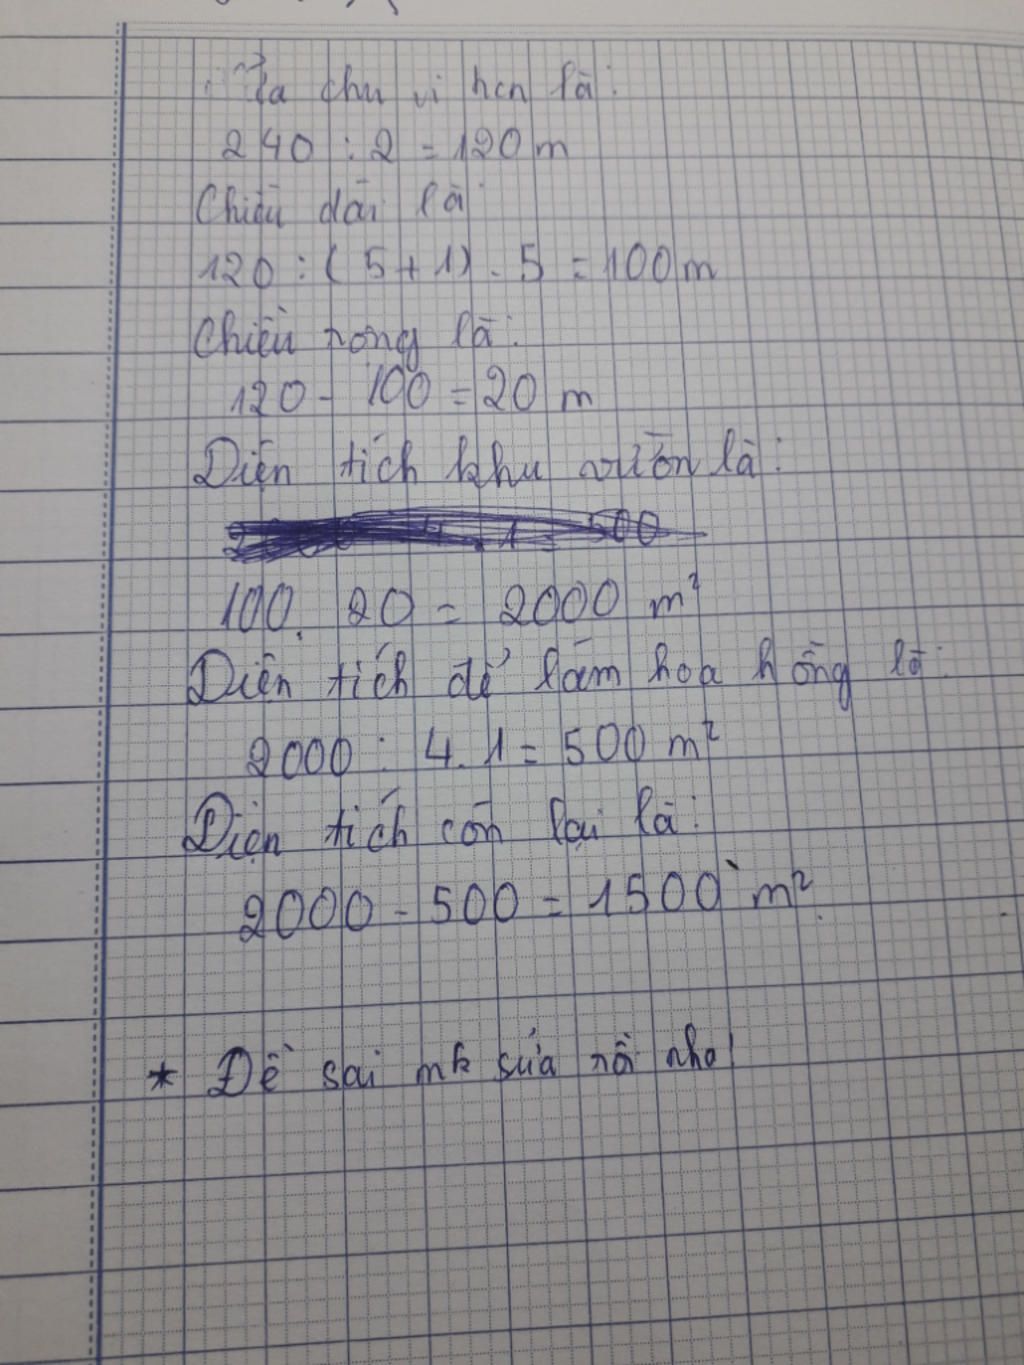 ½ chu vi hcn là:
240 : 2 = 120 m
Chiều dài là
120 : ( 5 + 1) . 5 = 100 m
Chiều rộng là:
120 - 100 = 20 m
Diện tích khu vườn là:
. 1 = 500
100. 20 = 2000 m²
Diện tích để làm hoa hồng là:
2000 : 4. 1 = 500 m²
Diện tích còn lại là:
2000 - 500 = 1500 m²
* Đề sai mk sửa rồi nha!